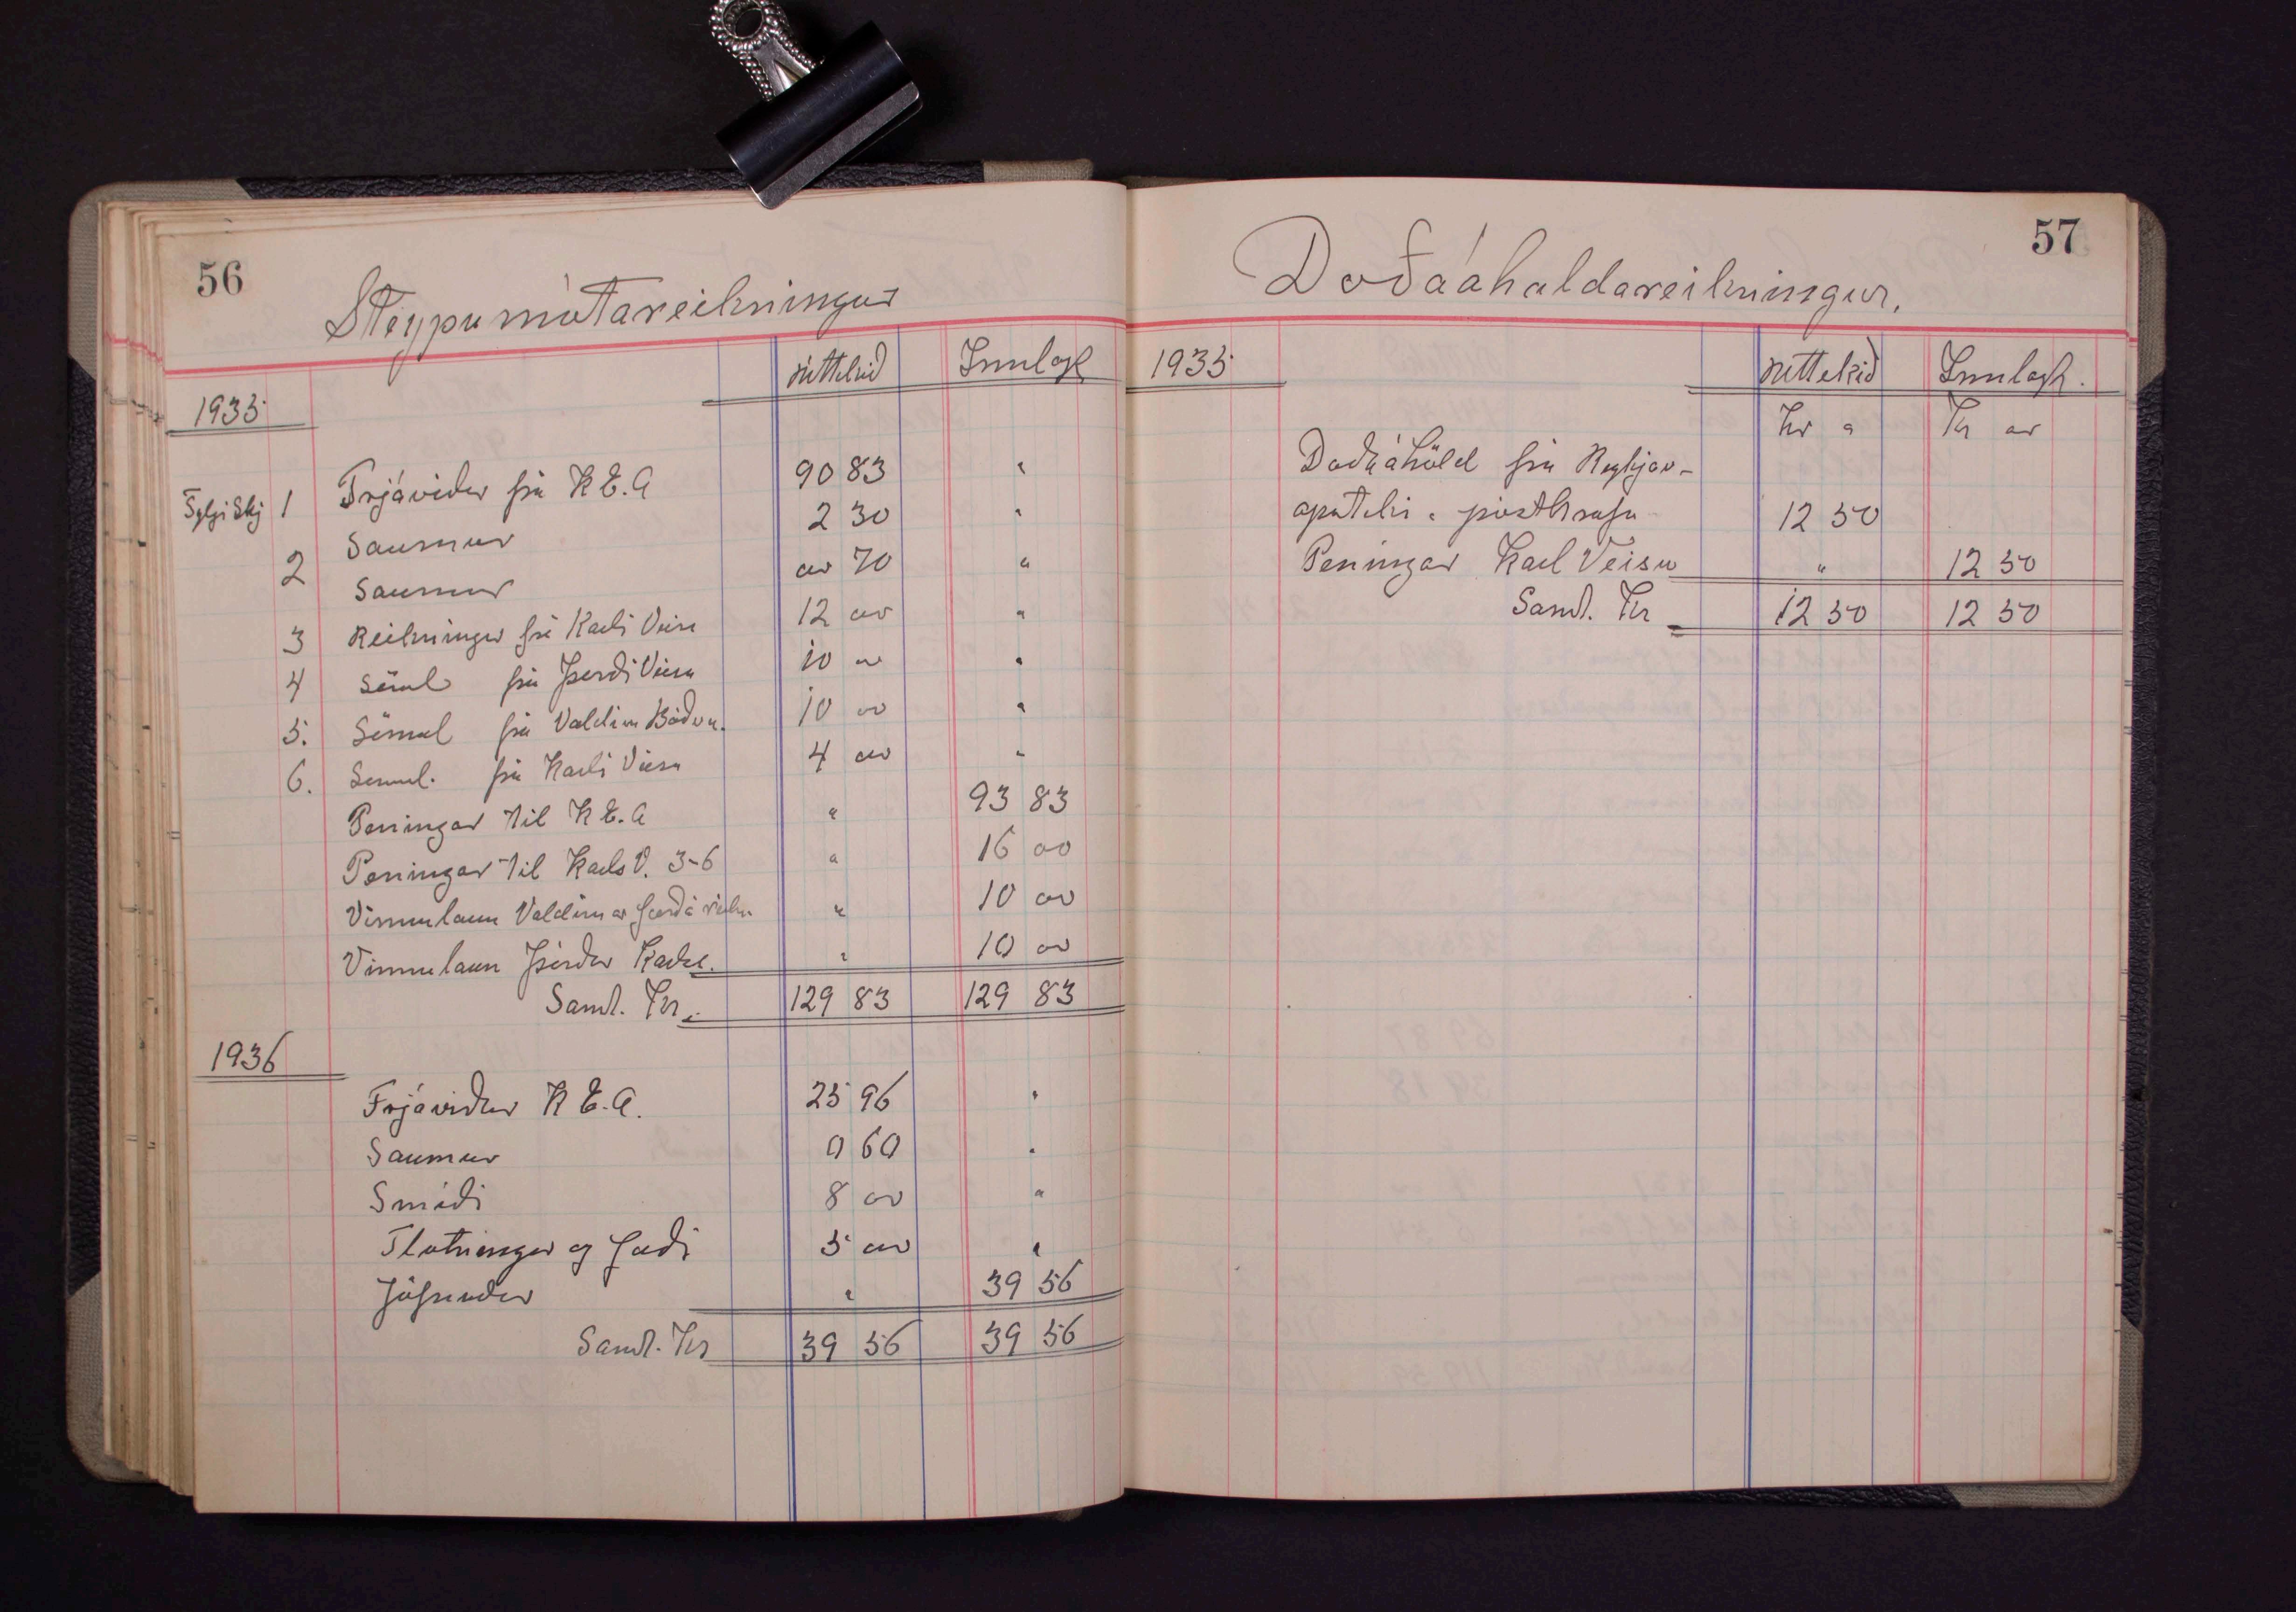 56
Steypumótareikningur
úttekið Innlagt
1935
Fylgiskj 1 Trjáviður frá K.E.A 90 83 "
Saumur 2 30 "
2 Saumur 00 70 "
3 Reikningur frá Karli Veisu 12 00 "
4 Sömul. frá Þórði Veisu 10 00 "
5. Sömul. frá Valdim Böðv. 10 00 "
6. Sömul. frá Karli Veisu 4 00 "
Peningar til K.E.A " 93 83
Peningar til Karls V. 3-6 " 16 00
Vinnulaun Valdimar " 10 00
Vinnulaun Þórður Karls. " 10 00
Samt. Kr. 129 83 129 83
1936
Trjáviður K.E.A. 25 96 "
Saumur 0 60 "
Smíði 8 00 "
Flutningur og fæði 5 00 "
Jöfnuður " 39 56
Samt. Kr 39 56 39 56
57
Doðaáhaldareikningur.
1935 úttekið Innlagt.
Kr a Kr ar
Doðaáhöld frá Reykjav-
apóteki " póstkrafa 12 50
Peningar Karl Veisu " 12 50
Samt. Kr 12 50 12 50